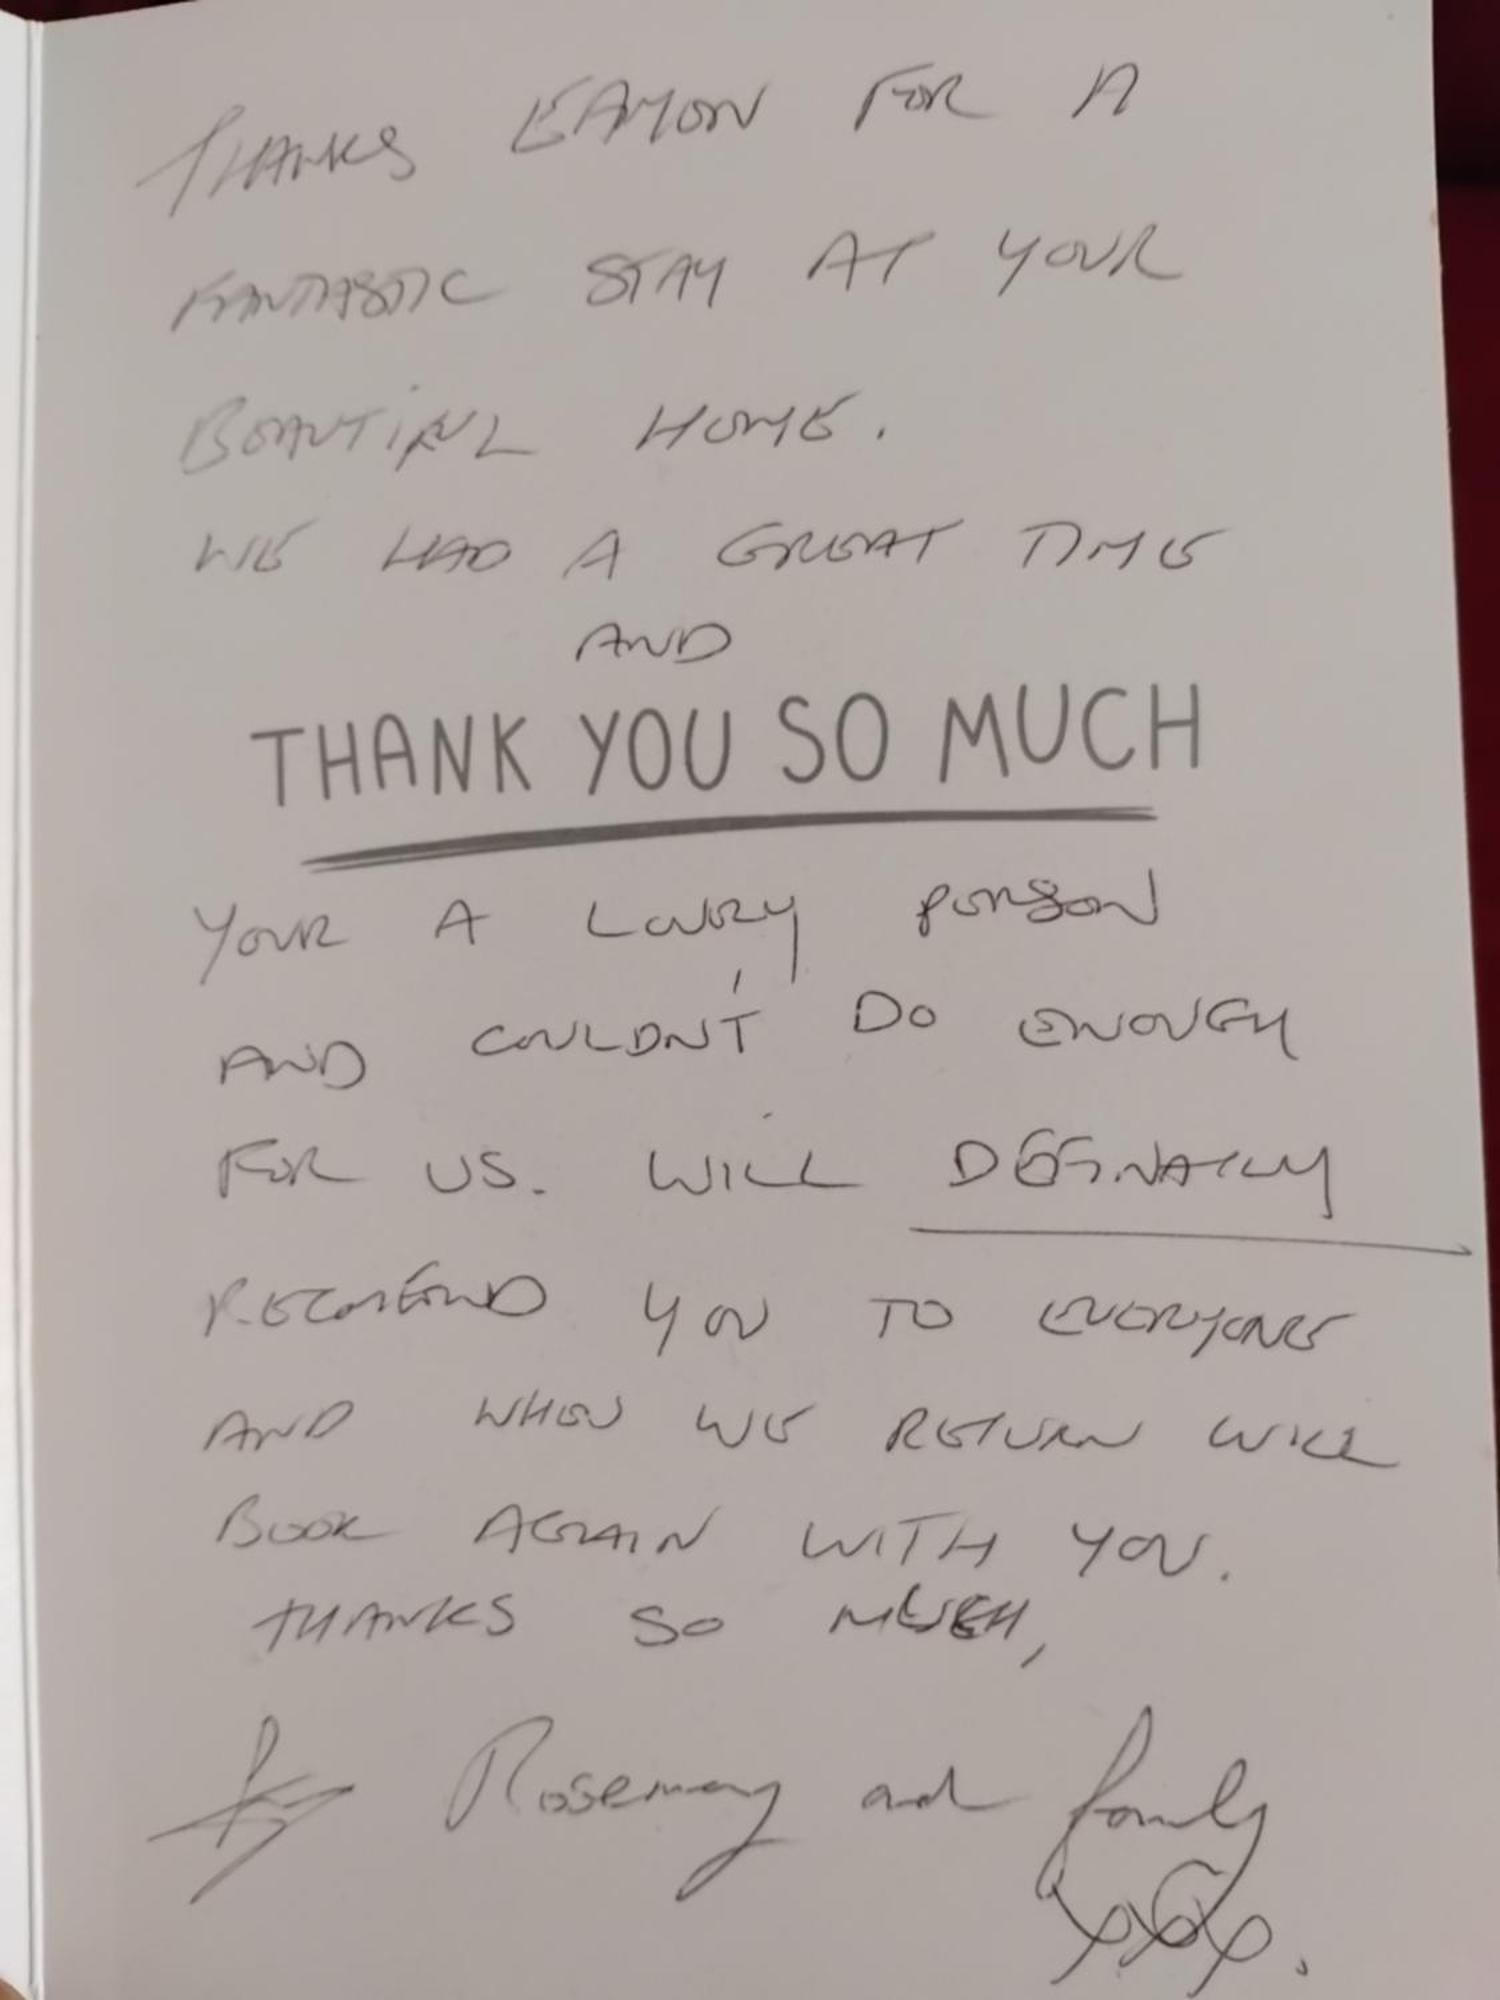 THANKS EAMON FOR A
FANTASTIC STAY AT YOUR
BEAUTIFUL HOME.
WE HAD A GREAT TIME
AND
THANK YOU SO MUCH
YOUR A LOVELY PERSON
AND COULDN'T DO ENOUGH
FOR US. WILL DEFINATLY
RECOMEND YOU TO EVERYONE
AND WHEN WE RETURN WILL
BOOK AGAIN WITH YOU.
THANKS SO MUCH,
Rosemary and family
xxx.